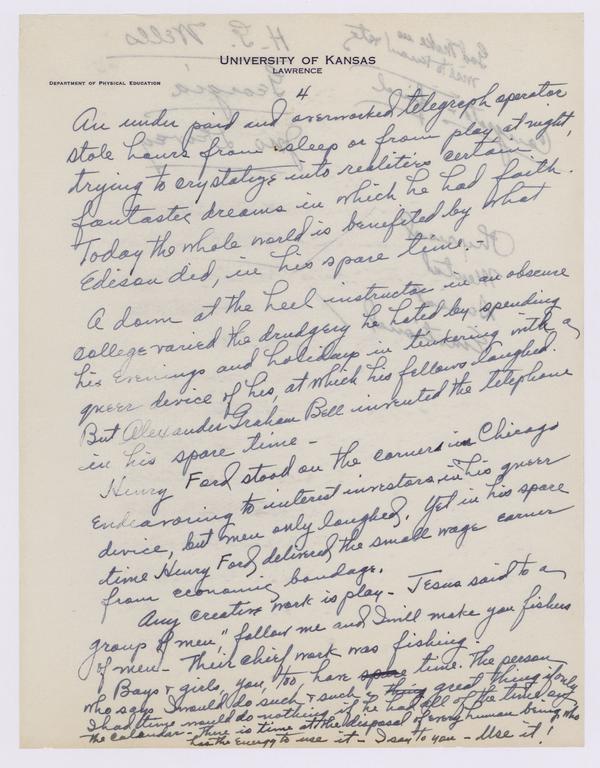 UNIVERSITY OF KANSAS
LAWRENCE
DEPARTMENT OF PHYSICAL EDUCATION
4
An under paid and overworked telegraph operator
stole hours from sleep or from play at night,
trying to crystalize into realities certain
fantastic dreams in which he had faith.
Today the whole world is benefited by what
Edison did, in his spare time. -
A down at the heel instructor in an obscure
college varied the drudgery he hated by spending
his evenings and holidays in tinkering with a
queer device of his, at which his fellows laughed.
But Alexander Graham Bell invented the telephone
in his spare time -
Henry Ford stood on the corners in Chicago
Endeavoring to interest investors in his queer
device, but men only laughed. Yet in his spare
time Henry Ford delivered the small wage earner
from economic bondage.
Any creative work is play - Jesus said to a
group of men, "follow me and I will make you fishers
of men - Their chief work was fishing.
Boys & girls, you, too have spare time. The person
who says I would do such & such a thing great thing if only
I had time would do nothing if he had all of the time on
the calendar - There is time at the disposal of every human being who
has the energy to use it - I say to you - Use it!
H. G. Wells
Georgia